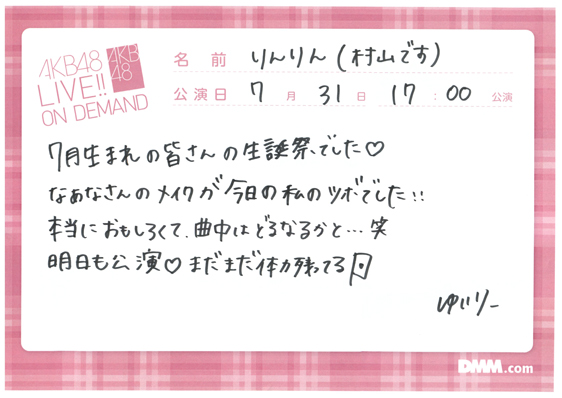 AKB48
LIVE!!
ON DEMAND
AKB
48
名 前 りんりん(村山です)
公演日 7 月 31 日 17 : 00 公演
7月生まれの皆さんの生誕祭でした♡
なぁなさんのメイクが今日の私のツボでした!!
本当におもしろくて、曲中はどうなるかと…笑
明日も公演♡まだまだ体力残ってる
ゆいりー
DMM.com